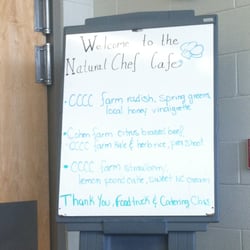 Welcome to the
Natural Chef Cafe
• CCCC farm radish, spring greens,
local honey vinaigrette
• Cohen farm citrus braised beef
- CCCC farm kale & herb rice, pea shoot
• CCCC farm strawberry
lemon pound cake, sweet ice cream
Thank You, Food truck & Catering Class